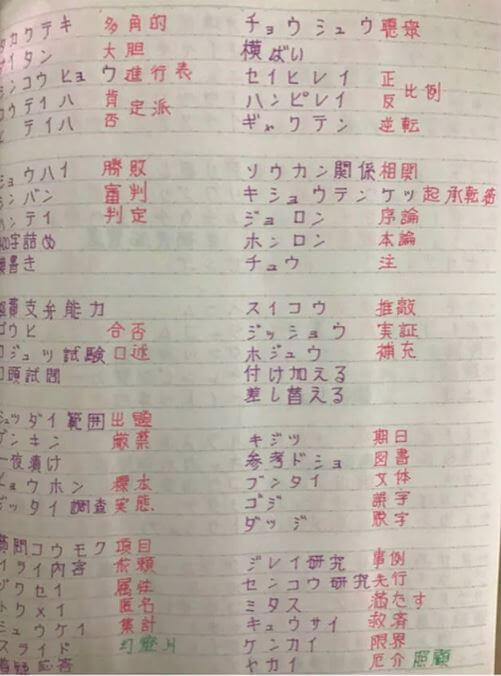 タクテキ 多角的
イタン 大胆
シコウヒョウ 進行表
ウテイハ 肯定派
テイハ 否
ョウハイ 勝敗
ンパン 審判
ンテイ 判定
400字詰め
書き
経費支弁能力
ゴウヒ 合否
コジュツ試験 口述
口頭試問
シュツダイ範囲 出題
ゲンキン 厳禁
一夜漬け
ヒョウホン 標本
ジッタイ調査 実態
質問コウモク 項目
イライ内容 依頼
ゾクセイ 属性
トクメイ 匿名
シュウケイ 集計
スライド 幻燈片
質疑応答
チョウシュウ 聴衆
横ばい
セイヒレイ 正比例
ハンピレイ 反
ギャクテン 逆転
ソウカン関係 相関
キショウテンケツ 起承転結
ジョロン 序論
ホンロン 本論
チュウ 注
スイコウ 推敲
ジッショウ 実証
ホジュウ 補充
付け加える
差し替える
キジツ 期日
参考ドショ 図書
ブンタイ 文体
ゴジ 誤字
ダッジ 脱字
ジレイ研究 事例
センコウ研究 先行
ミタス 満たす
キュウサイ 救済
ケンカイ 限界
ヤカイ 厄介 照顧